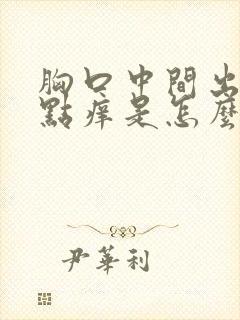 胸口中間出
點痒是怎麼
尹華利